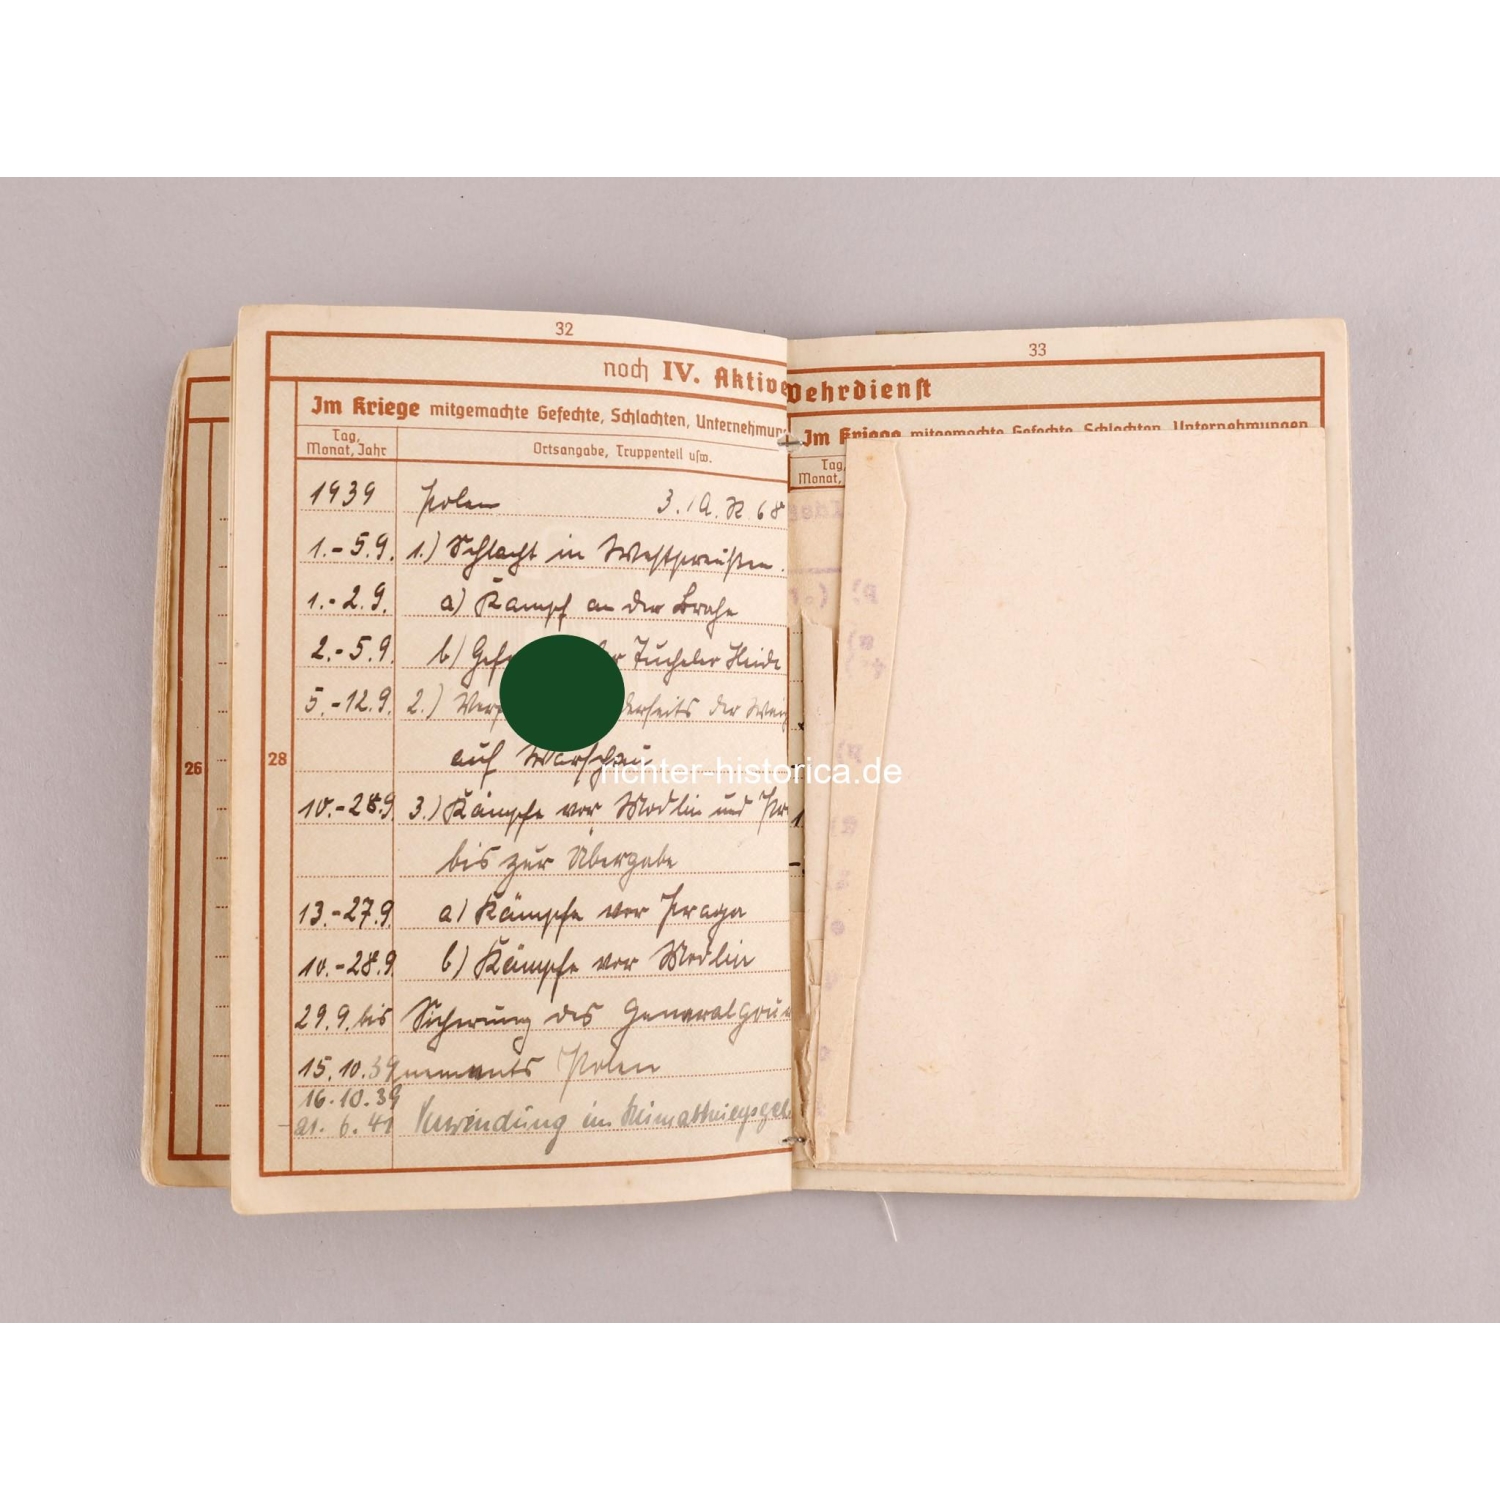 32
noch IV. Aktive
Im Kriege mitgemachte Gefechte, Schlachten, Unternehmun
Tag, Monat, Jahr
Ortsangabe, Truppenteil usw.
1939 Polen 3./A.R. 68
1.-5.9. 1.) Schlacht in Westpreußen.
1.-2.9. a) Kampf an der Brahe
2.-5.9. b) Gef r Tucheler Heide
5.-12.9. 2.) Verf derseits der Weich
auf Warschau
10.-28.9. 3.) Kämpfe vor Modlin und Pr
bis zur Übergabe
13.-27.9. a) Kämpfe vor Praga
10.-28.9. b) Kämpfe vor Modlin
29.9. bis Sicherung des Generalgou
15.10.39 nements Polen
16.10.39
- 21.6.41 Verwendung im Heimatkriegsgeb
26
28
33
Wehrdienst
Im Kriege mitgemachte Gefechte, Schlachten, Unternehmungen
Tag,
Monat,
richter-historica.de